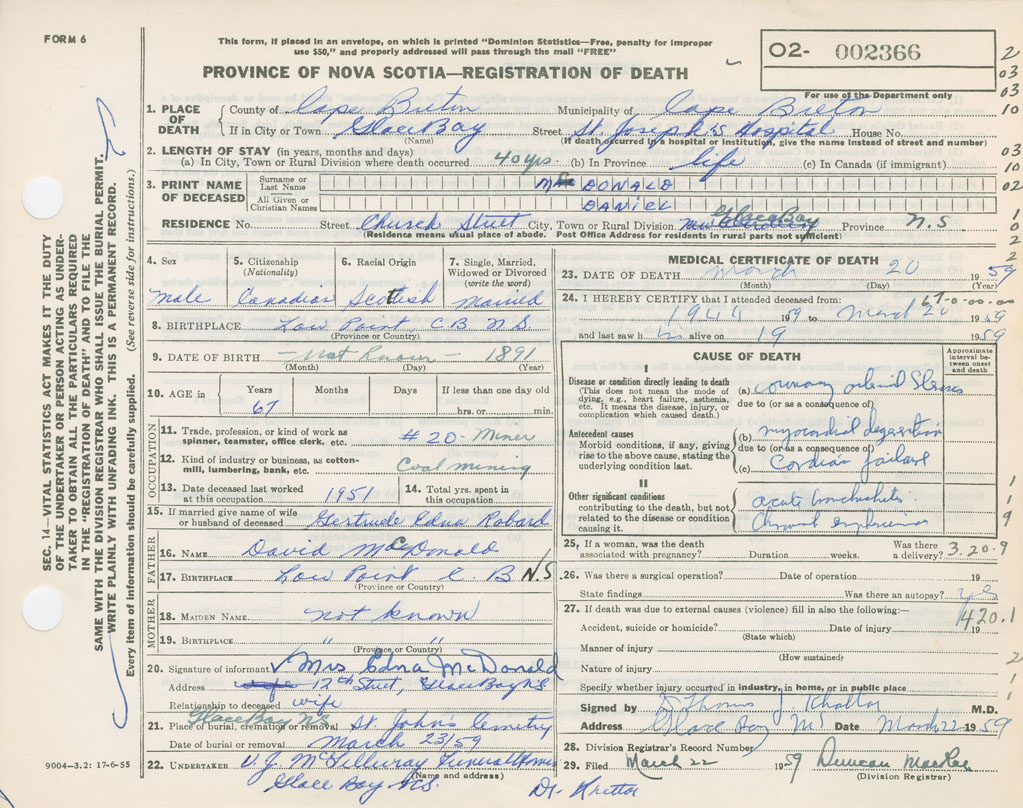 FORM 6
This form, if placed in an envelope, on which is printed "Dominion Statistics—Free, penalty for improper
use $50," and properly addressed will pass through the mail "FREE"
PROVINCE OF NOVA SCOTIA—REGISTRATION OF DEATH
O2- 002366
For use of the Department only
2
03
03
10
03
10
02
SEC. 14—VITAL STATISTICS ACT MAKES IT THE DUTY
OF THE UNDERTAKER OR PERSON ACTING AS UNDER-
TAKER TO OBTAIN ALL THE PARTICULARS REQUIRED
IN THE "REGISTRATION OF DEATH" AND TO FILE THE
SAME WITH THE DIVISION REGISTRAR WHO SHALL ISSUE THE BURIAL PERMIT.
WRITE PLAINLY WITH UNFADING INK. THIS IS A PERMANENT RECORD.
Every item of information should be carefully supplied. (See reverse side for instructions.)
1. PLACE OF DEATH
County of Cape Breton Municipality of Cape Breton
If in City or Town Glace Bay Street St. Joseph's Hospital House No.
(Name) (If death occurred in a hospital or institution, give the name instead of street and number)
2. LENGTH OF STAY (in years, months and days)
(a) In City, Town or Rural Division where death occurred 40 yrs. (b) In Province life (c) In Canada (if immigrant)
3. PRINT NAME OF DECEASED
Surname or Last Name MacDONALD
All Given or Christian Names DANIEL
RESIDENCE No. Street Church Street City, Town or Rural Division Glace Bay Province N.S
(Residence means usual place of abode. Post Office Address for residents in rural parts not sufficient)
4. Sex
Male
5. Citizenship
(Nationality)
Canadian
6. Racial Origin
Scottish
7. Single, Married,
Widowed or Divorced
(write the word)
Married
8. BIRTHPLACE Low Point, C.B N.S.
(Province or Country)
9. DATE OF BIRTH —Not Known— 1891
(Month) (Day) (Year)
10. AGE in
Years Months Days If less than one day old
67 hrs. or min.
OCCUPATION
11. Trade, profession, or kind of work as
spinner, teamster, office clerk, etc. #20- Miner
12. Kind of industry or business, as cotton-
mill, lumbering, bank, etc. Coal mining
13. Date deceased last worked
at this occupation 1951
14. Total yrs. spent in
this occupation
15. If married give name of wife
or husband of deceased Gertrude Edna Robard
FATHER
16. NAME David McDonald
17. BIRTHPLACE Low Point C. B N.S
(Province or Country)
MOTHER
18. MAIDEN NAME not known
19. BIRTHPLACE " "
(Province or Country)
20. Signature of informant Mrs Edna McDonald
Address 12th Street, Glace Bay N.S
Relationship to deceased wife
Glace Bay N.S
21. Place of burial, cremation or removal St. John's Cemetry
Date of burial or removal March 23/59
22. UNDERTAKER V.J. McGillivray Funeral Home
(Name and address)
Glace Bay N.S.
9004—3.2: 17-6-55
MEDICAL CERTIFICATE OF DEATH
23. DATE OF DEATH March 20 1959
(Month) (Day) (Year)
24. I HEREBY CERTIFY that I attended deceased from: 67-0-00-00
1944 to March 20 1959
and last saw him alive on 19 1959
CAUSE OF DEATH
Approximate
interval be-
tween onset
and death
I
Disease or condition directly leading to death
(This does not mean the mode of
dying, e.g., heart failure, asthenia,
etc. It means the disease, injury, or
complication which caused death.)
(a) coronary
due to (or as a consequence of)
Antecedent causes
Morbid conditions, if any, giving
rise to the above cause, stating the
underlying condition last.
(b) myocardial degeneration
due to (or as a consequence of)
(c) Cordiac failure
II
Other significant conditions
contributing to the death, but not
related to the disease or condition
causing it.
acute bronchitis.
Chronic emphysema
25. If a woman, was the death
associated with pregnancy? Duration weeks. Was there
a delivery? 3.20.9
26. Was there a surgical operation? Date of operation 19
State findings Was there an autopsy? yes
27. If death was due to external causes (violence) fill in also the following:— 420.1
Accident, suicide or homicide? Date of injury 19
(State which)
Manner of injury
(How sustained)
Nature of injury
Specify whether injury occurred in industry, in home, or in public place
Signed by M.D.
Address Glace Bay NS Date March 22 1959
28. Division Registrar's Record Number
29. Filed March 22 1959 Duncan MacRae
(Division Registrar)